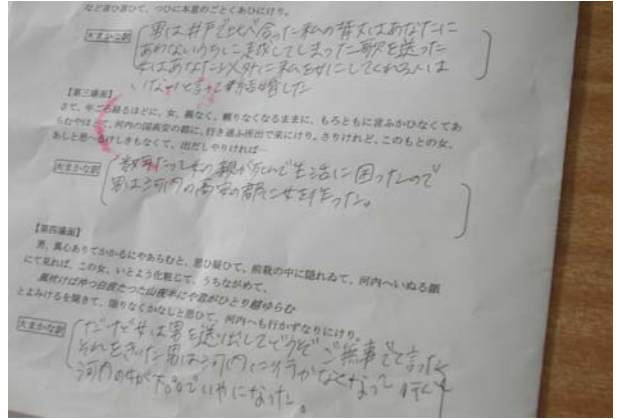 などき言ひて、つひに本意のごとくあひにけり。
大まかな訳
男は井戸で比べ合った私の背丈はあなたに
あわないうちに超してしまった歌を送った
女はあなた以外に私を女にしてくれる人は
いないと言って結婚した
【第三場面】
さて、年ごろ経るほどに、女、親なく、頼りなくなるままに、もろともに言ふかひなくてあ
らむやはとて、河内の国高安の郡に、行き通ふ所出で来にけり。さりけれど、このもとの女、
あしと思へるけしきもなくて、出だしやりければ―
大まかな訳
数年たって女の親が死んで生活に困ったので
男は河内の高安の郡に女を作った。
【第四場面】
男、異心ありてかかるにやあらむと、思ひ疑ひて、前栽の中に隠れゐて、河内へいぬる顔
にて見れば、この女、いとよう化粧じて、うちながめて、
風吹けば沖つ白波たつた山夜半にや君がひとり越ゆらむ
とよみけるを聞きて、限りなくかなしと思ひて、河内へも行かずなりにけり。
大まかな訳
だけど女は男を送り出してどうぞご無事でと言った
それをきいた男は河内に行かなくなって
河内の女が下品でいやになった。